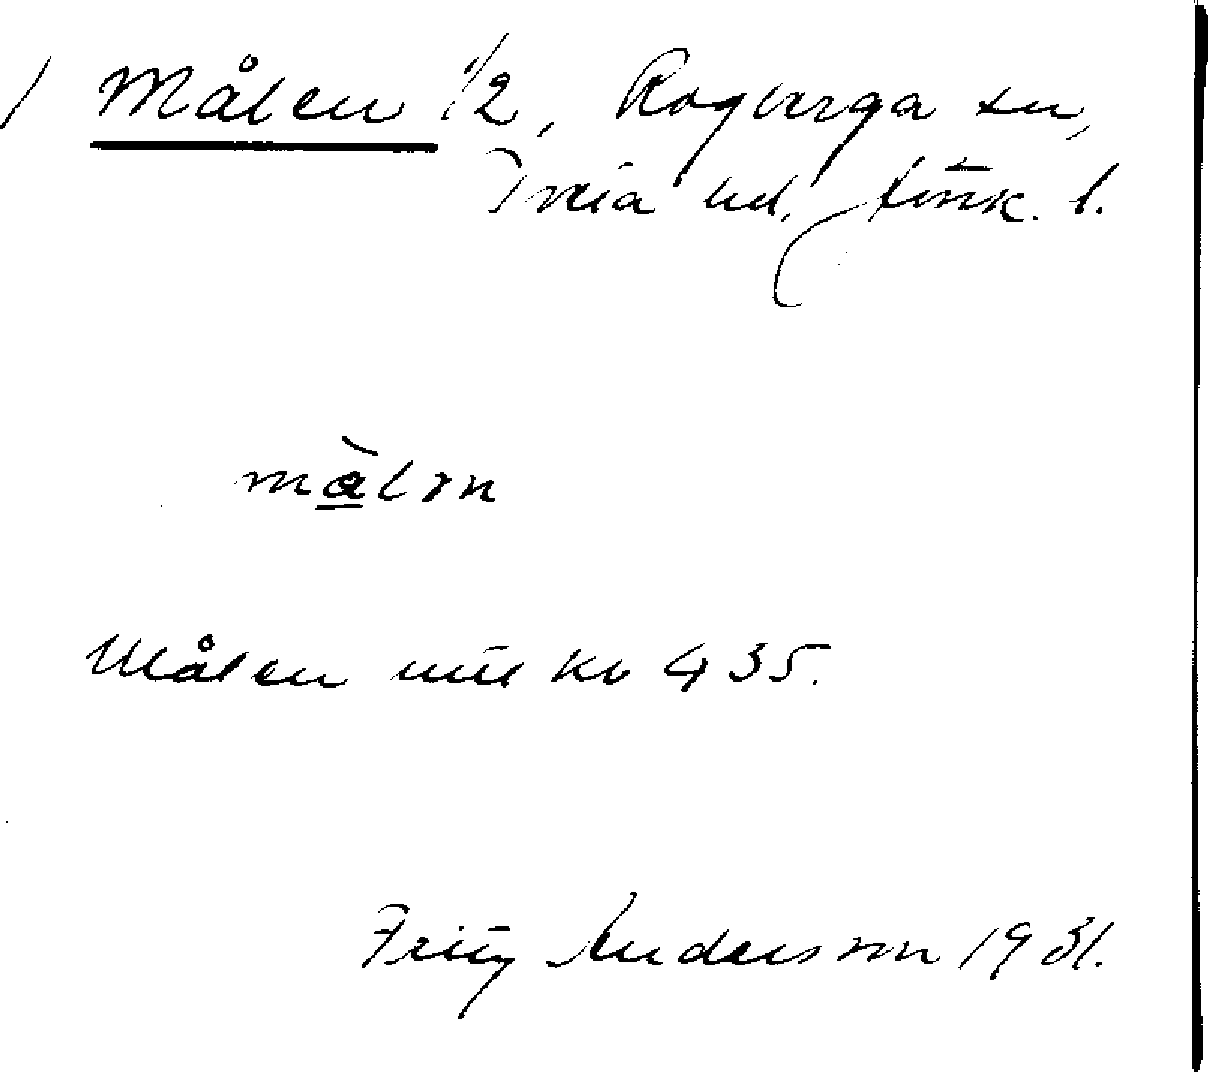 / Målen 1/2, Rogberga sn,
Tveta hd, Jönk. l.
målən
Målen mtl kb 435.
Fritz Andersson 1931.